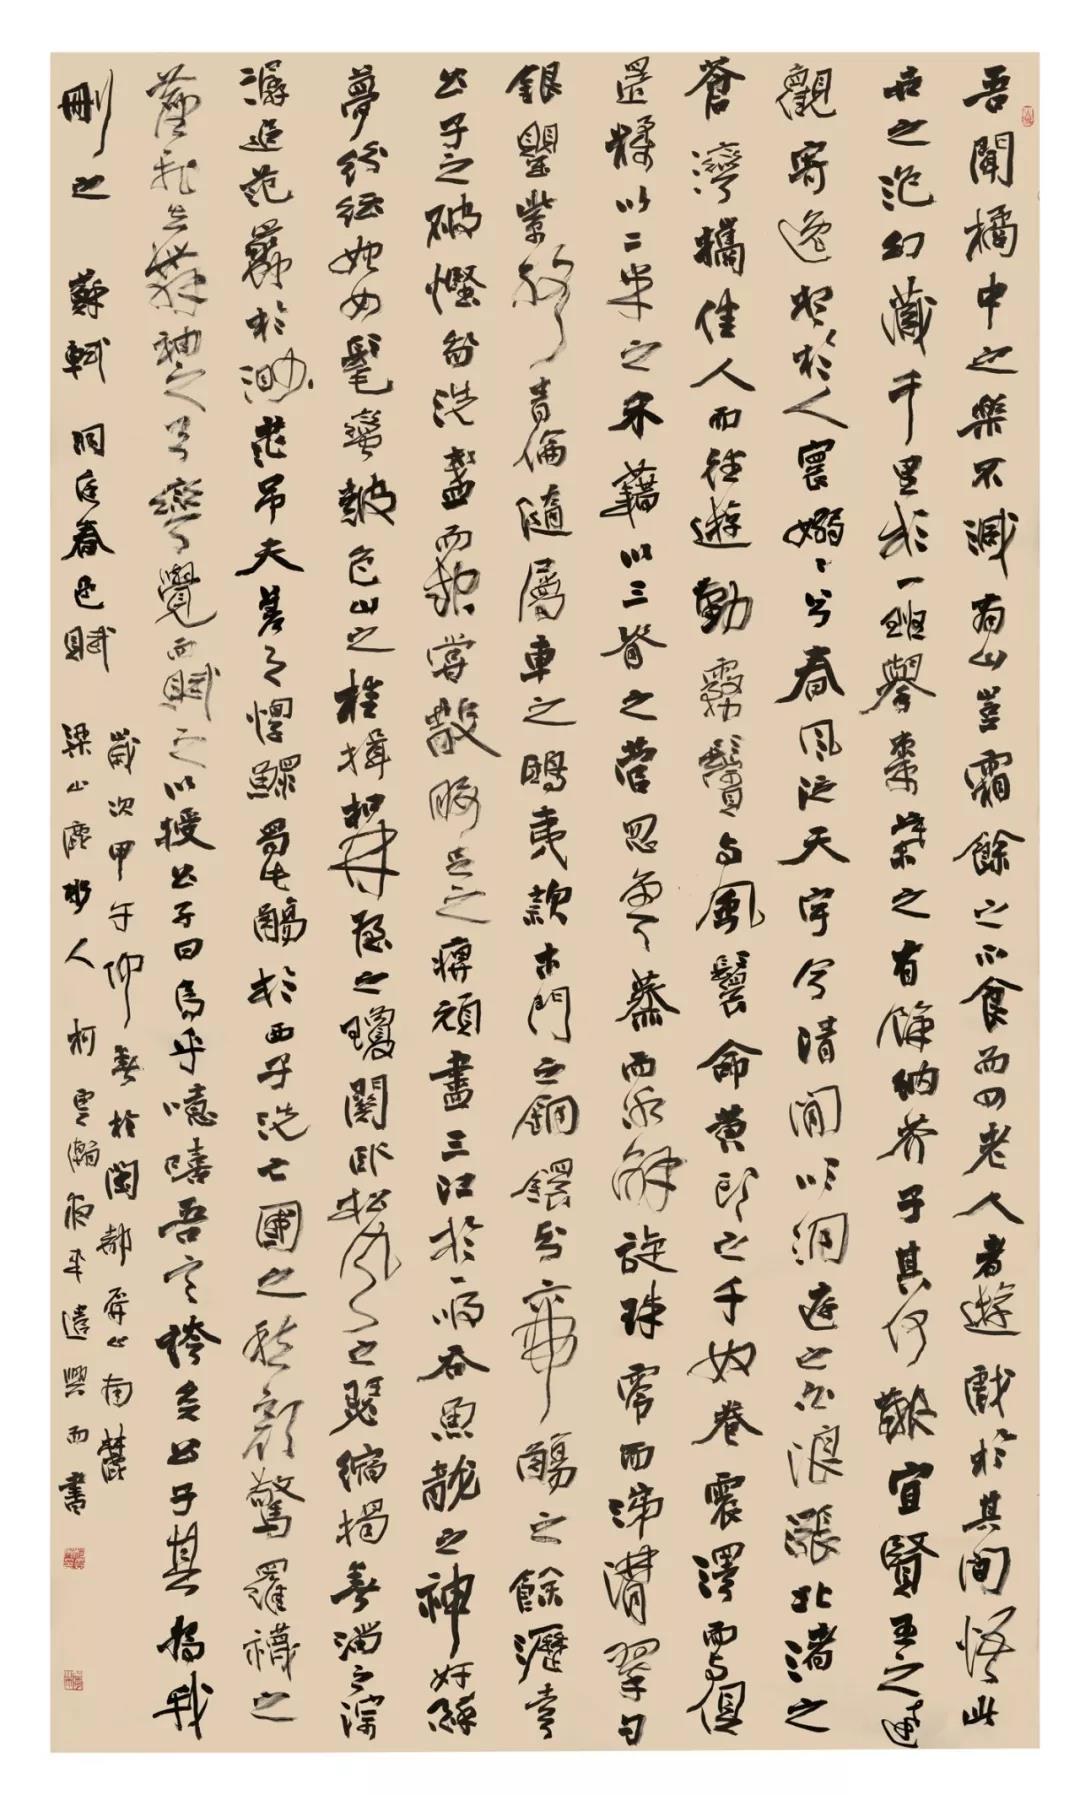 吾聞橘中之樂不減商山豈霜餘之不食而四老人者遊戲於其間悟此
世之泡幻藏千里於一斑舉棗葉之有餘納芥子其何艱宜賢王之達
觀寄逸想於人寰嫋〻兮春風泛天宇兮清閒吹洞庭之白浪漲北渚之
蒼灣攜佳人而往遊勤霧鬢與風鬟命黃頭之千奴卷震澤而與俱
還糅以二米之禾藉以三脊之菅忽雲蒸而冰解旋珠零而涕潸翠勺
銀罌紫絡青倫隨屬車之鴟夷款木門之銅鐶分帝觴之餘瀝幸
公子之破慳我洗盞而起嘗散腰足之痹頑盡三江於一吸吞魚龍之神奸醉
夢紛紜始如髦蠻鼓包山之桂楫扣林屋之瓊關臥松風之瑟縮揭春溜之淙
潺追范蠡於渺茫吊夫差之惸鰥屬此觴於西子洗亡國之愁顏驚羅襪之
塵飛失舞袖之弓彎覺而賦之以授公子曰烏乎噫嘻吾言誇矣公子其為我
刪之 蘇軾 洞庭春色賦
歲次甲午仰春於閩都屏山南麓
梁山鹿人 柯雲瀚夜半遣興而書